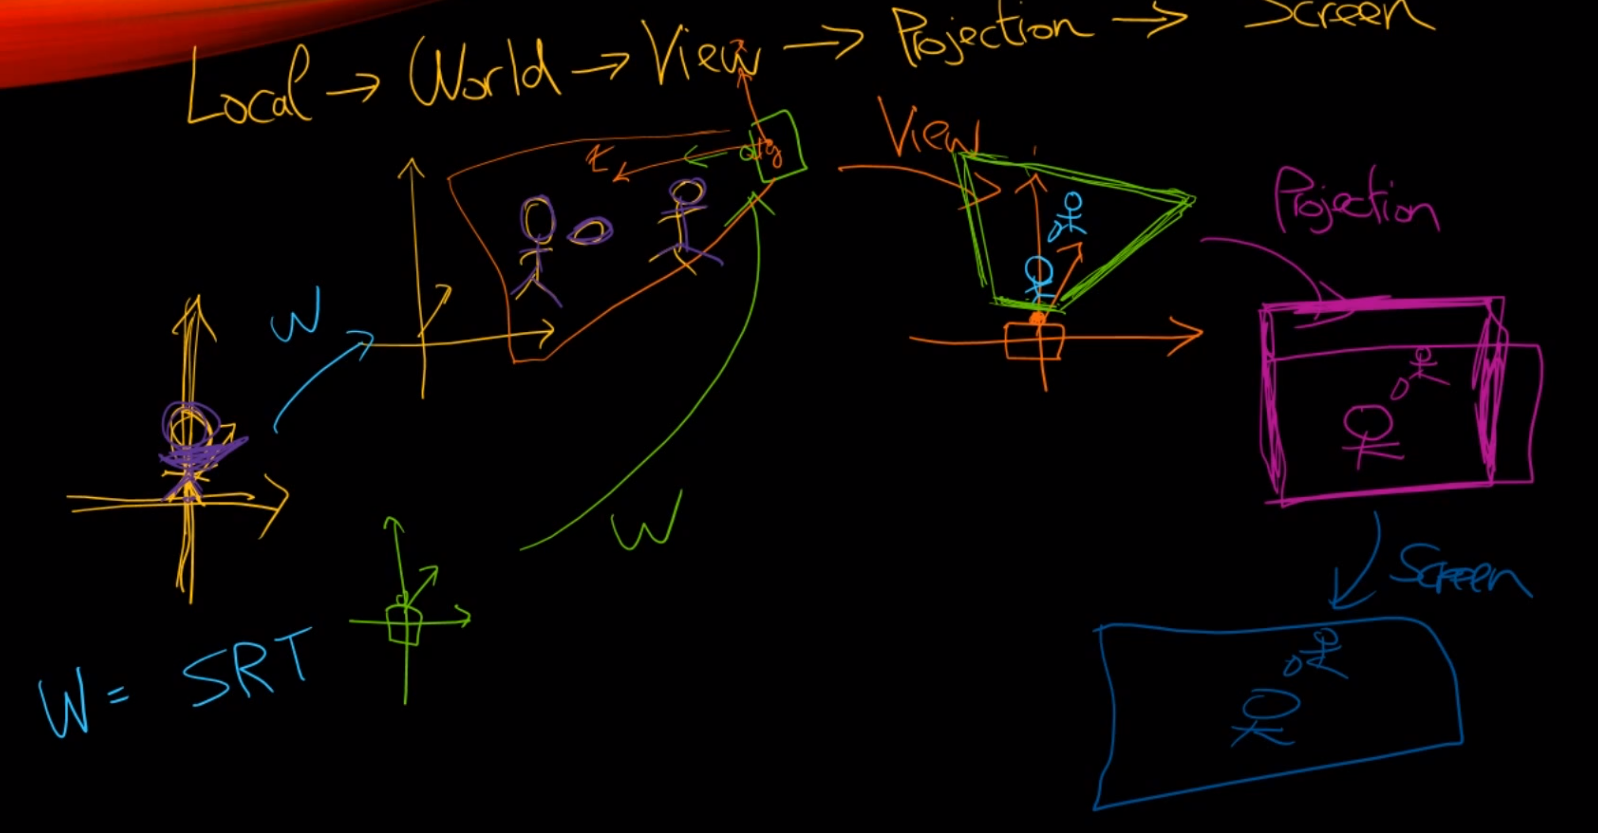 Local → World → View → Projection → Screen
View
z
Projection
W
W
Screen
W = SRT